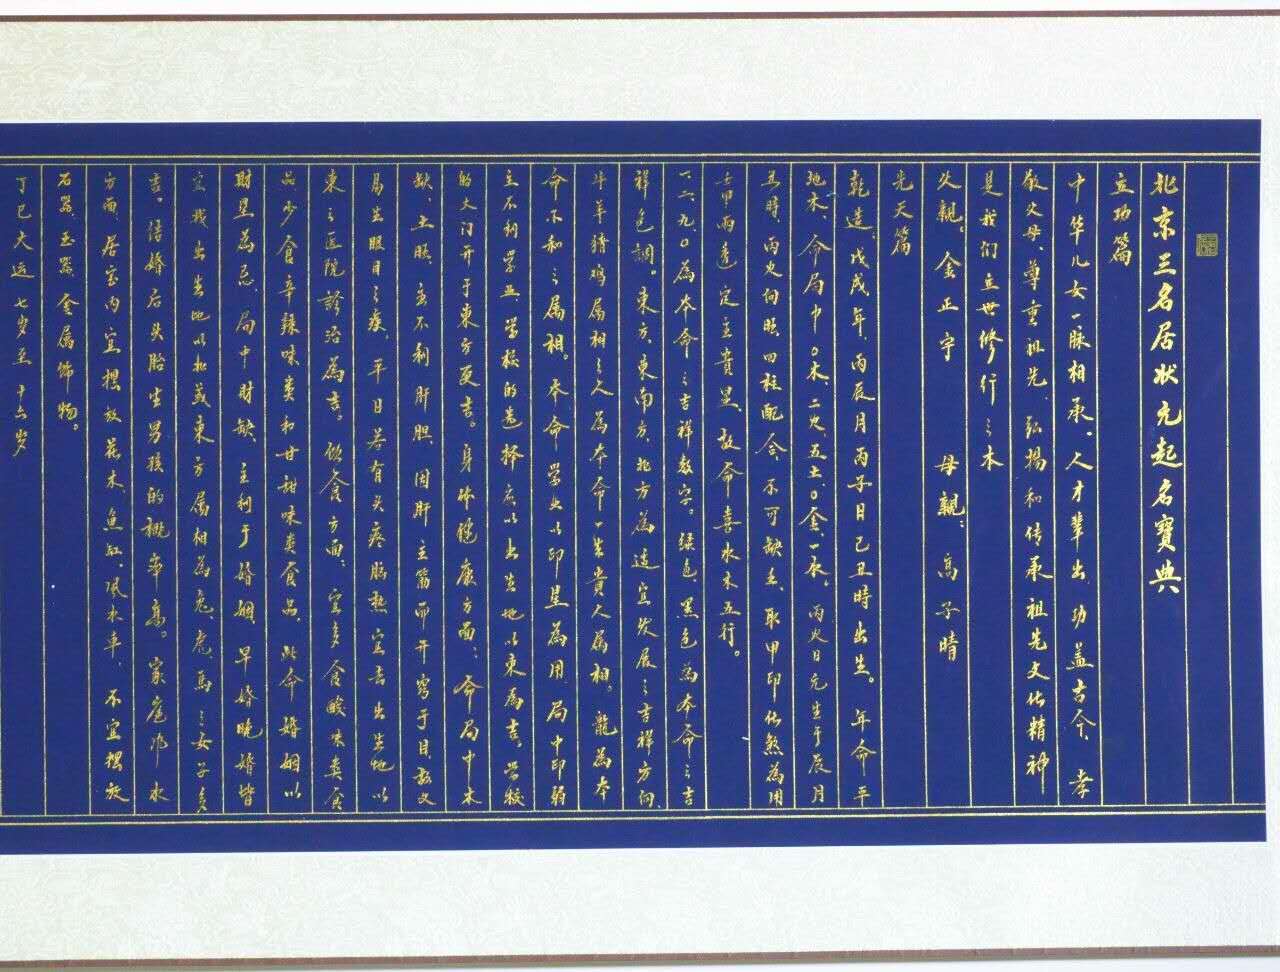 北京三名居状元起名寶典
立功篇
中华儿女一脉相承。人才辈出功盖古今、孝
敬父母、尊重祖先、弘揚和传承祖先文化精神
是我们立世修行之本
父親。金正宇 母親：高子晴
先天篇
乾造、戊戌年、丙辰月丙子日己丑時出生。年命平
地木、命局中0木、二火、五土0金、一水。丙火日元生于辰月
丑時、丙火伺照四柱配合、不可缺失、取甲印化煞為用
壬甲两透定主貴显、故命喜水木五行。
一、二、九、0為本命之吉祥数字。绿色、黑色為本命之吉
祥色調。東方、東南方、北方為适宜发展之吉祥方向、
牛羊猪鸡属相之人為本命一生貴人属相。龍為本
命不和之属相。本命学业以印星為用局中印弱
主不利学业、学校的选择应以出生地以東為吉。学校
的大门开于東方更吉。身体健康方面：命局中木
缺、土旺、主不利肝胆、因肝主筋而开窍于目、故又
易生眼目之疾、平日若有头疼脑热宜去出生地以
東之医院診治為吉。饮食方面：宜多食酸味类食
品、少食辛辣味类和甘甜味类食品、此命婚姻以
財星為忌、局中財缺、主利于婚姻、早婚晚婚皆
宜找出生地以北或東方属相為兔、虎、馬之女子為
吉。结婚后头胎生男孩的概率高。家庭风水
方面、居室内宜摆放花木、鱼缸、风水车、不宜摆放
石器、玉器、金属饰物。
丁巳大运七岁至十六岁